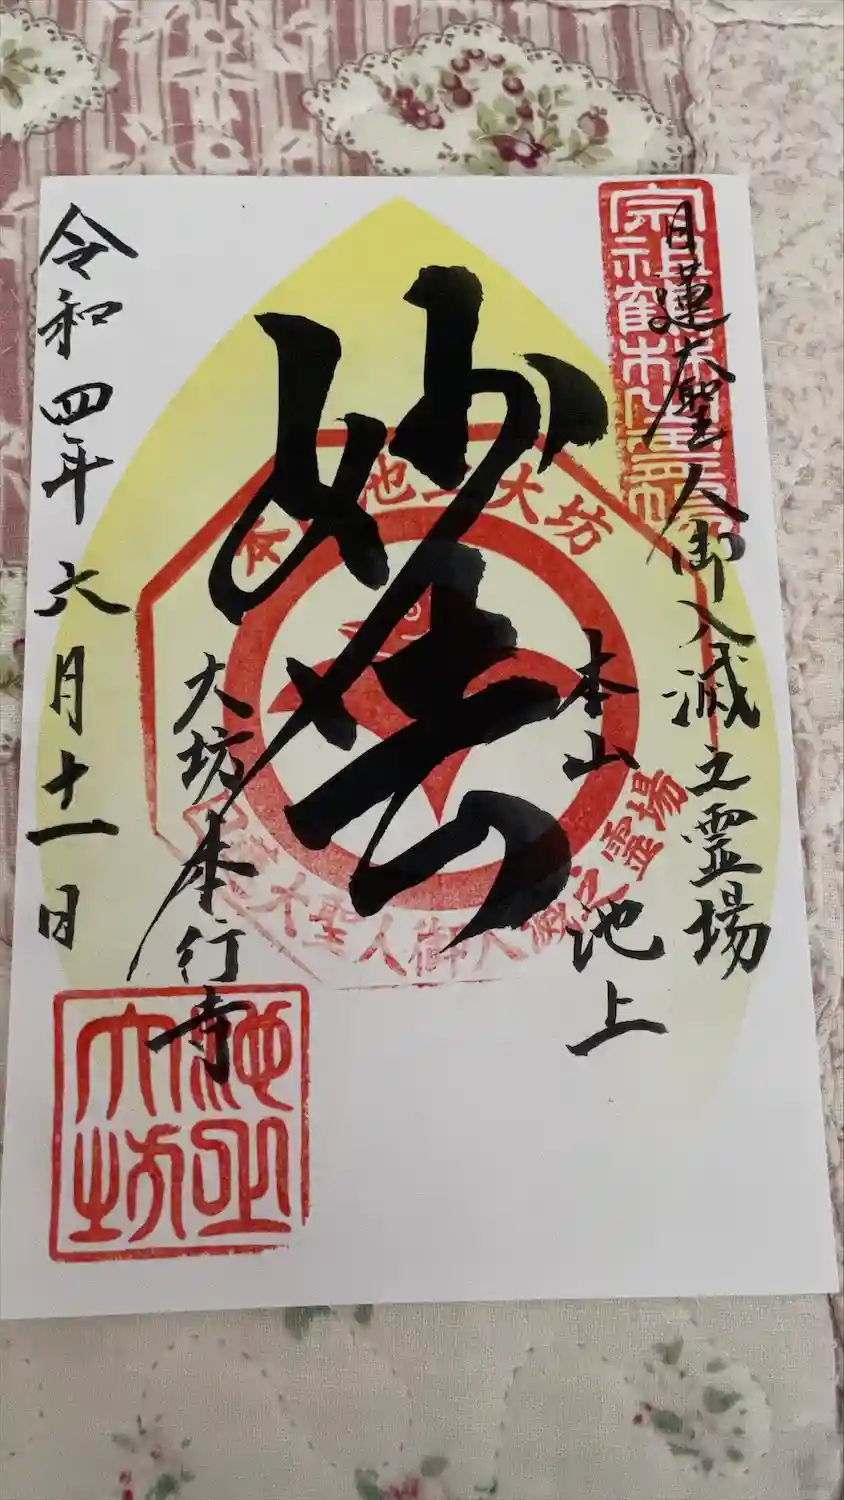 日蓮大聖人御入滅之霊場
本山 池上
妙法
大坊本行寺
令和四年六月十一日
池上大坊
大聖人御入滅之霊場
池上
大坊